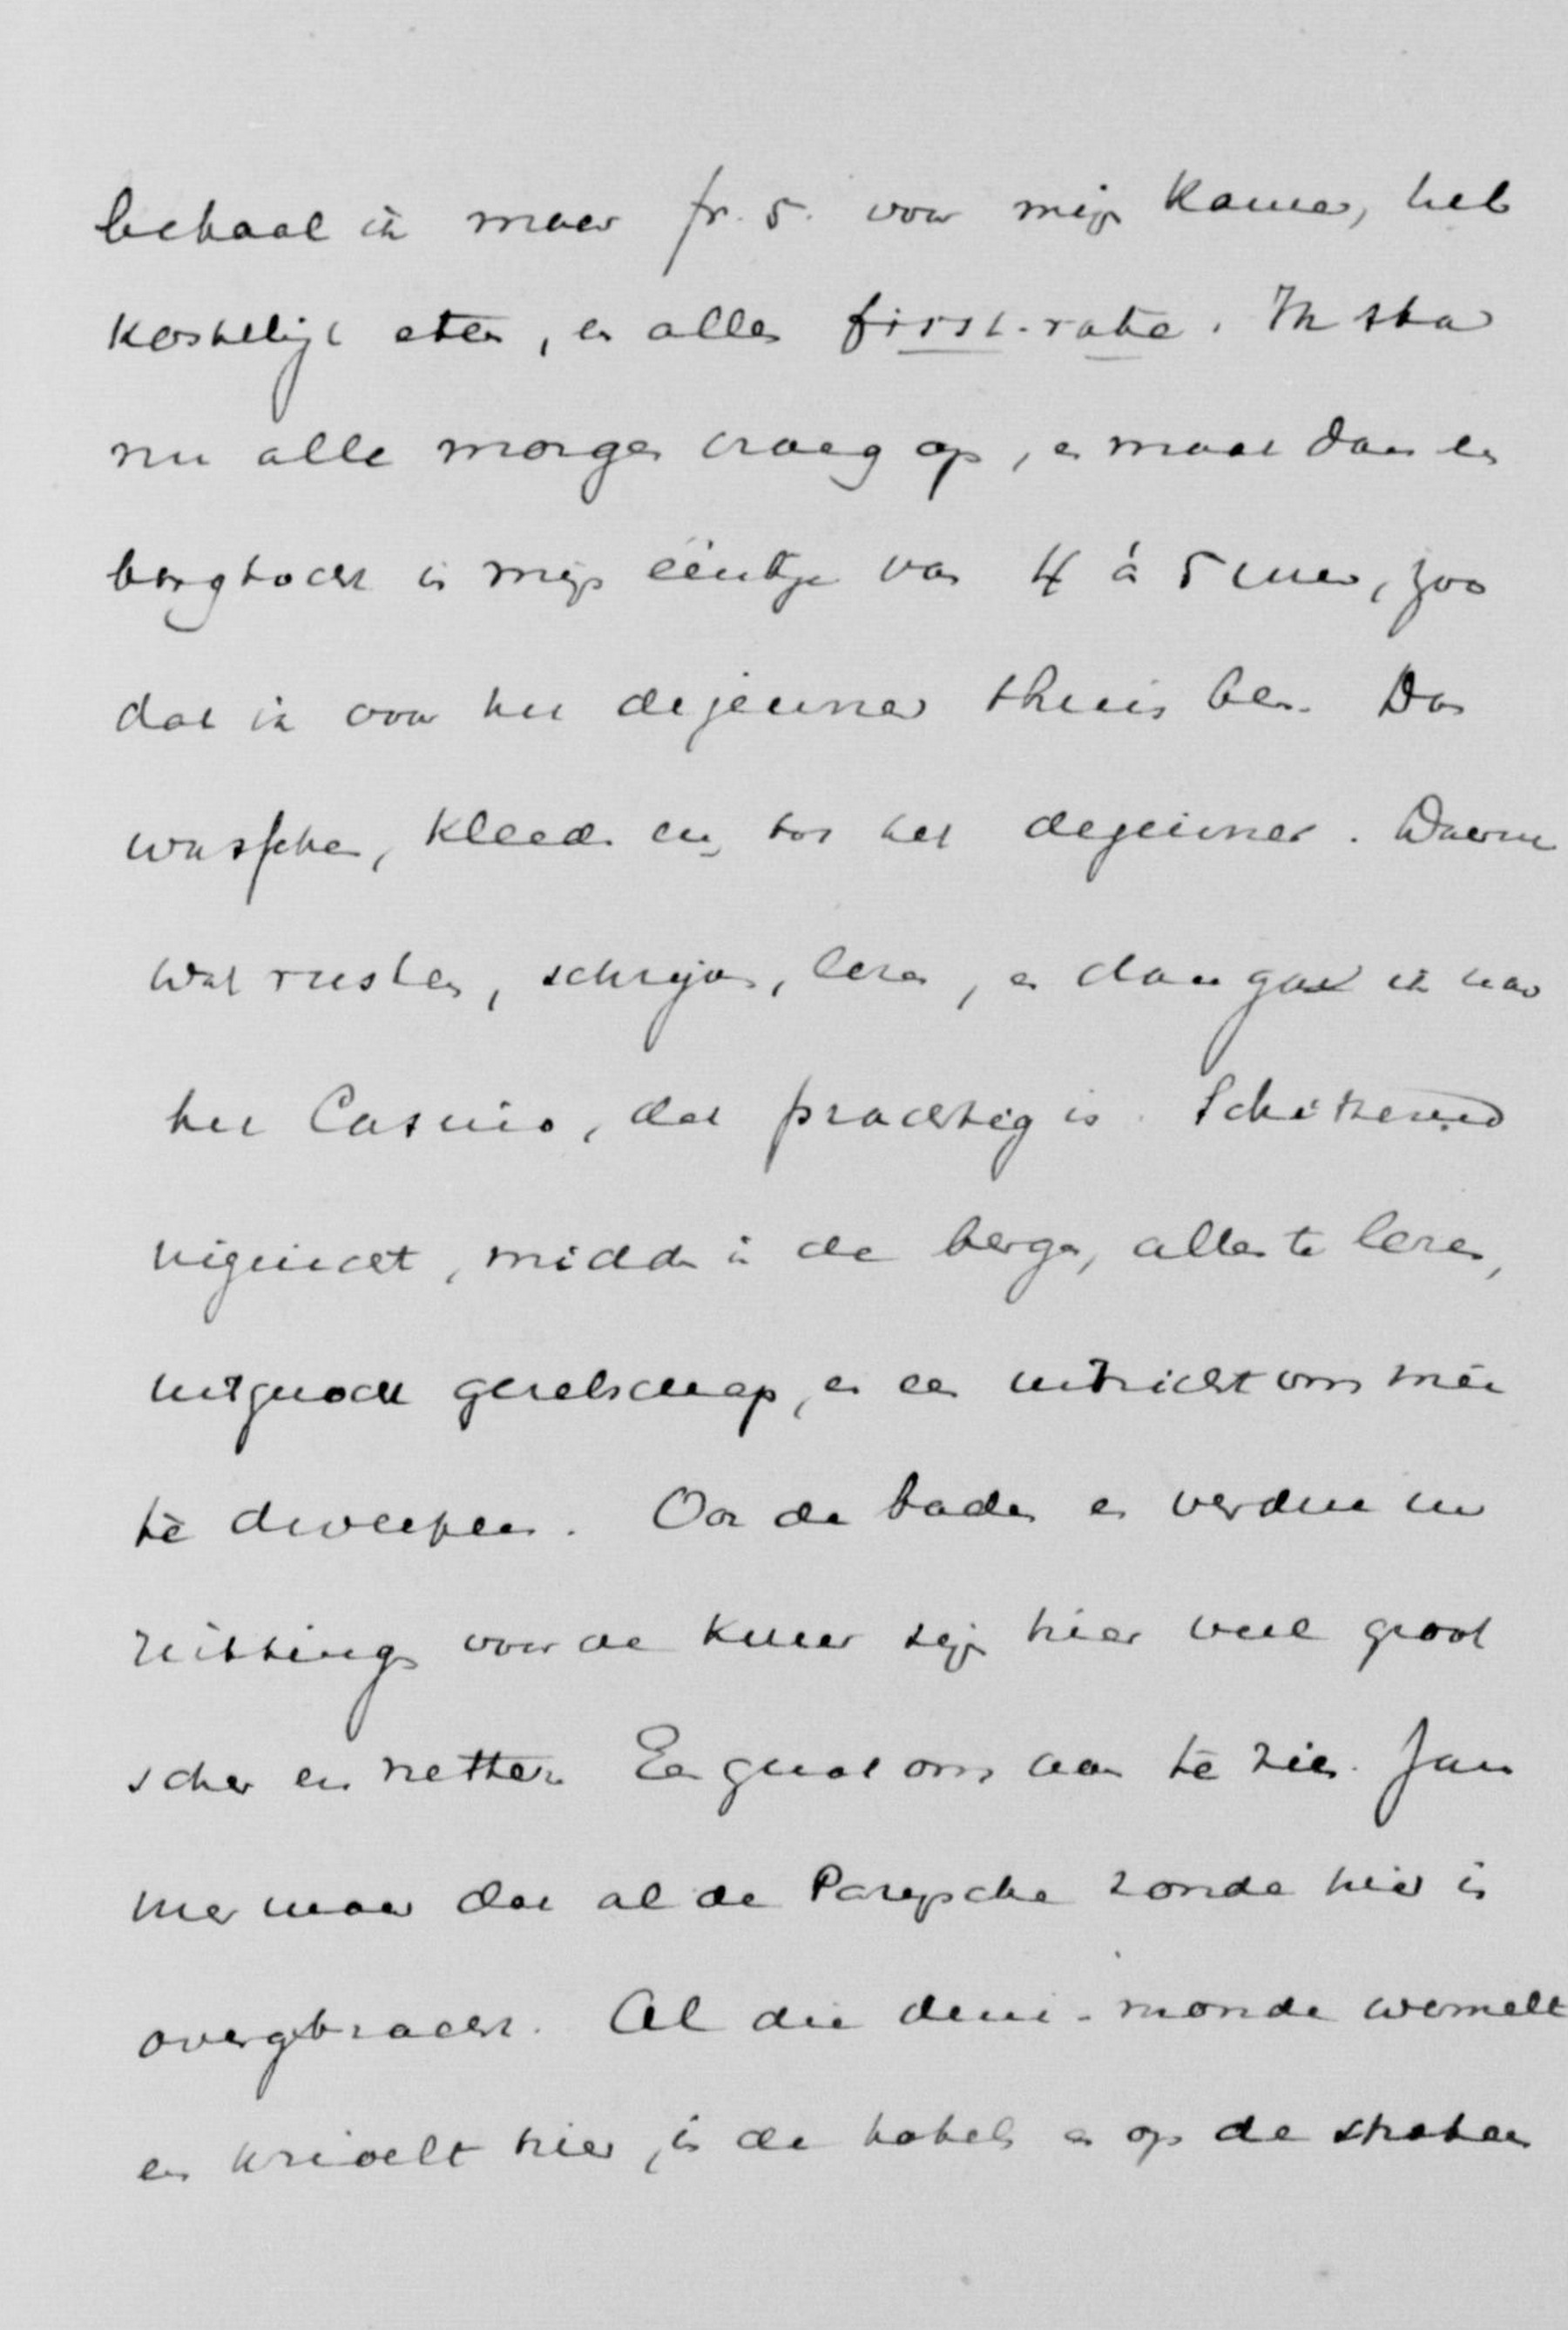 betaal ik maar fr. 5. voor mijn kamer, heb
kostelijk eten, en alles first-rate. Ik sta
nu alle morgen vroeg op, en maak dan een
bergtocht in mijn ééntje van 4 à 5 uur, zoo
dat ik voor het dejeuner thuis ben. Dan
wasschen, kleeden, en tot het dejeuner. Daarna
wat rusten, schrijven, lezen, en dan ga ik naar
het Casino, dat prachtig is. Schitterend
ingericht, midden in de bergen, alles te lezen,
uitgezocht gezelschap, en een uitzicht om mee
te dweepen. Ook de baden en verdere in
richtingen voor de kuur zijn hier veel groot
scher en netter. Een genot om aan te zien. Jam
mer maar dat al de Parijsche zonde hier is
overgebracht. Al die demi-monde wemelt
en krioelt hier, in de hotels en op de straten